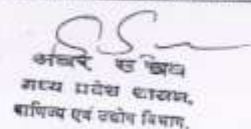 अवर स चिव
मध्य प्रदेश शासन,
वाणिज्य एवं उद्योग विभाग,